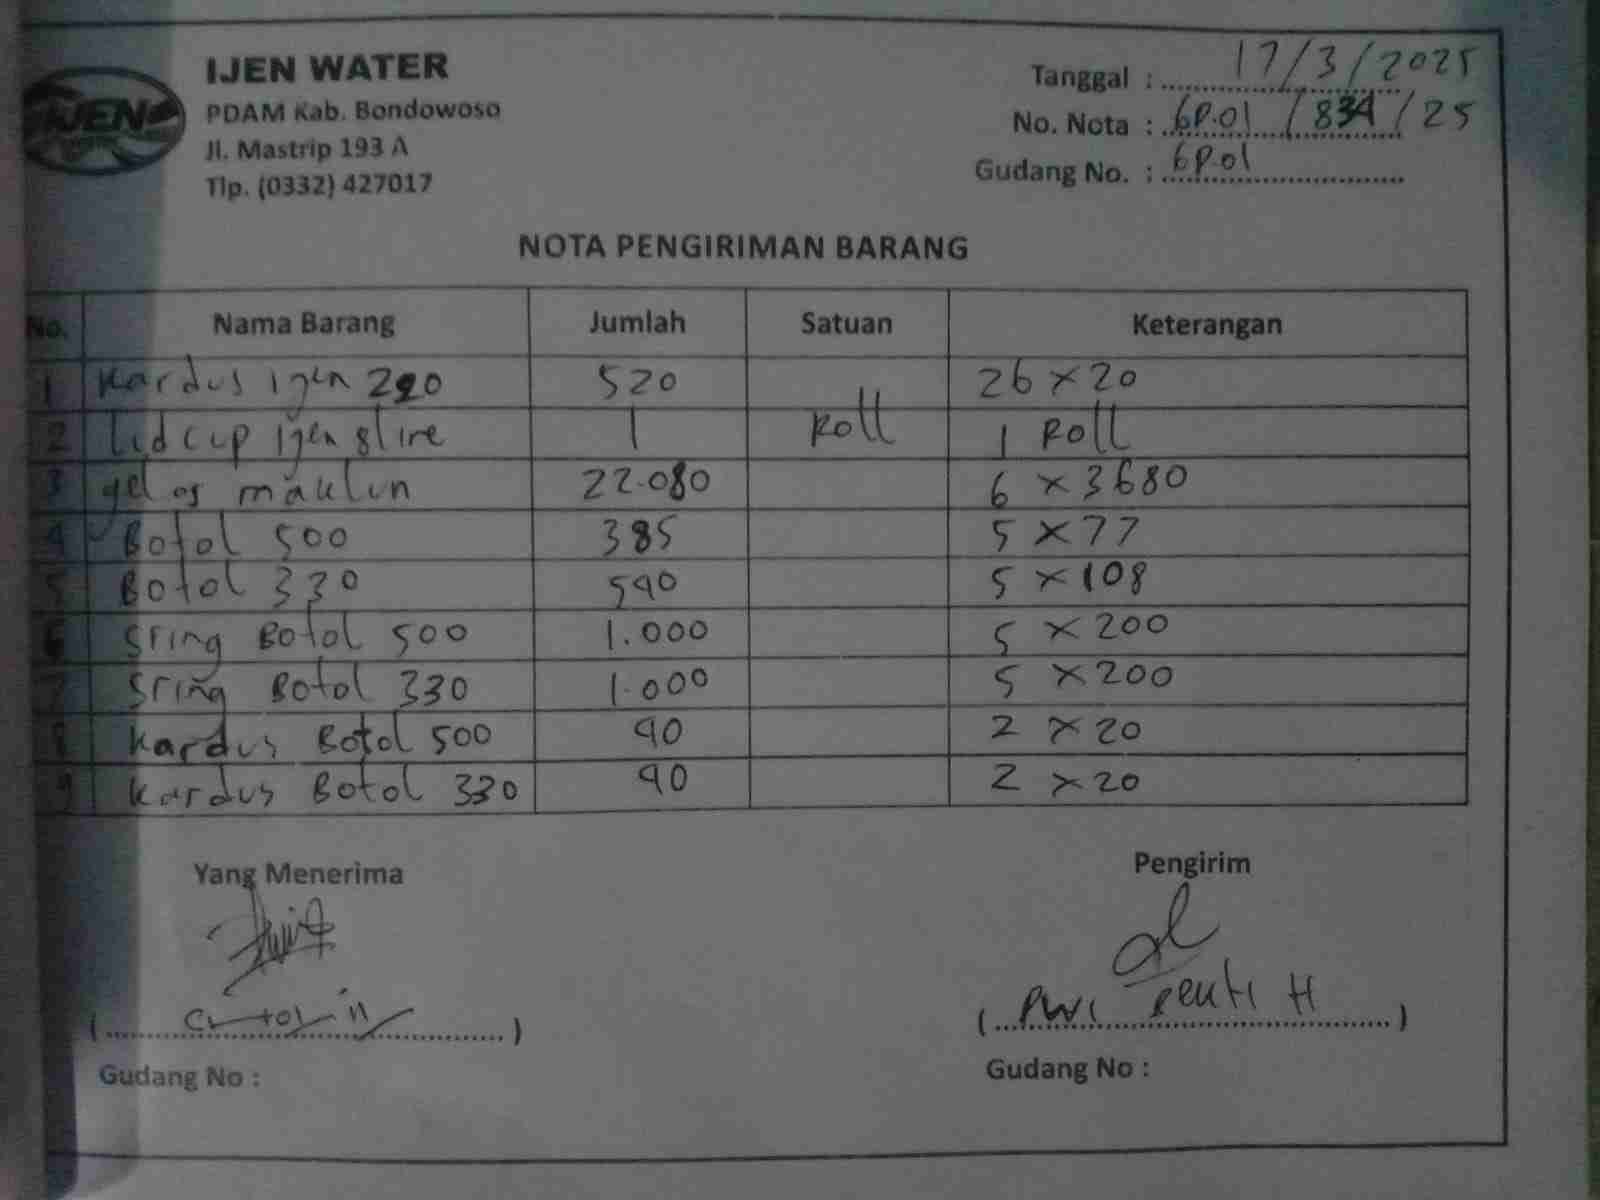 IJEN
IJEN WATER
PDAM Kab. Bondowoso
Jl. Mastrip 193 A
Tlp. (0332) 427017
Tanggal : 17/3/2025
No. Nota : 6P.01 /834/ 25
Gudang No. : 6P.01
NOTA PENGIRIMAN BARANG
No. Nama Barang Jumlah Satuan Keterangan
1 Kardus ijen 220 520 26 x 20
2 Lid cup ijen 8 line 1 Roll 1 Roll
3 gelas maklun 22.080 6 x 3680
4 Botol 500 385 5 x 77
5 Botol 330 540 5 x 108
6 Sring Botol 500 1.000 5 x 200
7 Sring Botol 330 1.000 5 x 200
8 Kardus Botol 500 40 2 x 20
9 Kardus Botol 330 40 2 x 20
Yang Menerima Pengirim
Gudang No : Gudang No :